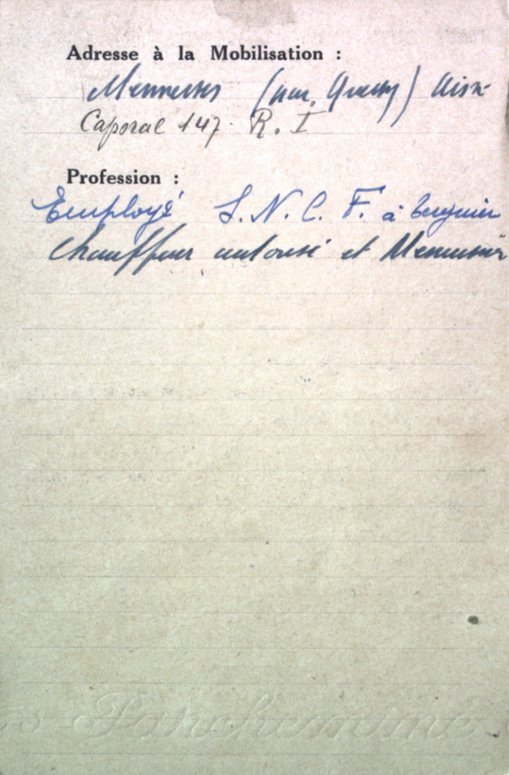 Adresse à la Mobilisation :
Mennessis (par Quessy) Aisne
Caporal 147. R. I
Profession :
Employé S. N. C. F. à Tergnier
Chauffeur autorisé et Menuisier
Parcheminé